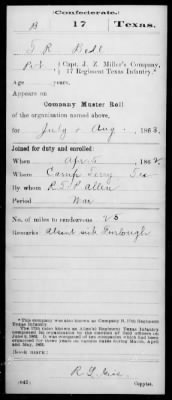 Confederate.
B 17 Texas.
T R Bell
Pvt, Capt. J. Z. Miller's Company,
17 Regiment Texas Infantry.*
Age years.
Appears on
Company Muster Roll
of the organization named above,
for July & Aug., 1863.
Joined for duty and enrolled:
When Apr 5, 1862.
Where Camp Terry Tex
By whom R.T.P. Allen
Period War
No. of miles to rendezvous 25
Remarks Absent sick furlough
*This company was also known as Company B, 17th Regiment
Texas Infantry.
The 17th (also known as Allen's) Regiment Texas Infantry
Book mark:
(642)
Copyist.